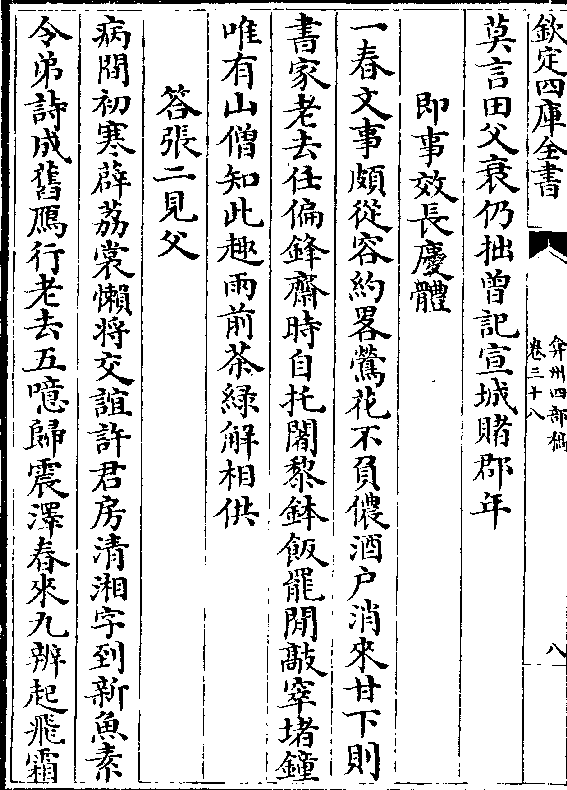 欽定四庫全書
弇州四部稿
卷三十八
八
莫言田父衰仍拙曾記宣城賭郡年
即事效長慶體
一春文事頗從容約畧鶯花不負儂酒户消來甘下則
書家老去任偏鋒齋時自托闍黎鉢飯罷閒敲窣堵鐘
唯有山僧知此趣雨前茶緑解相供
答張二見父
病閒初寒薜荔裳懶將交誼許君房清湘字到新魚素
令弟詩成舊鴈行老去五噫歸震澤春來九辨起飛霜